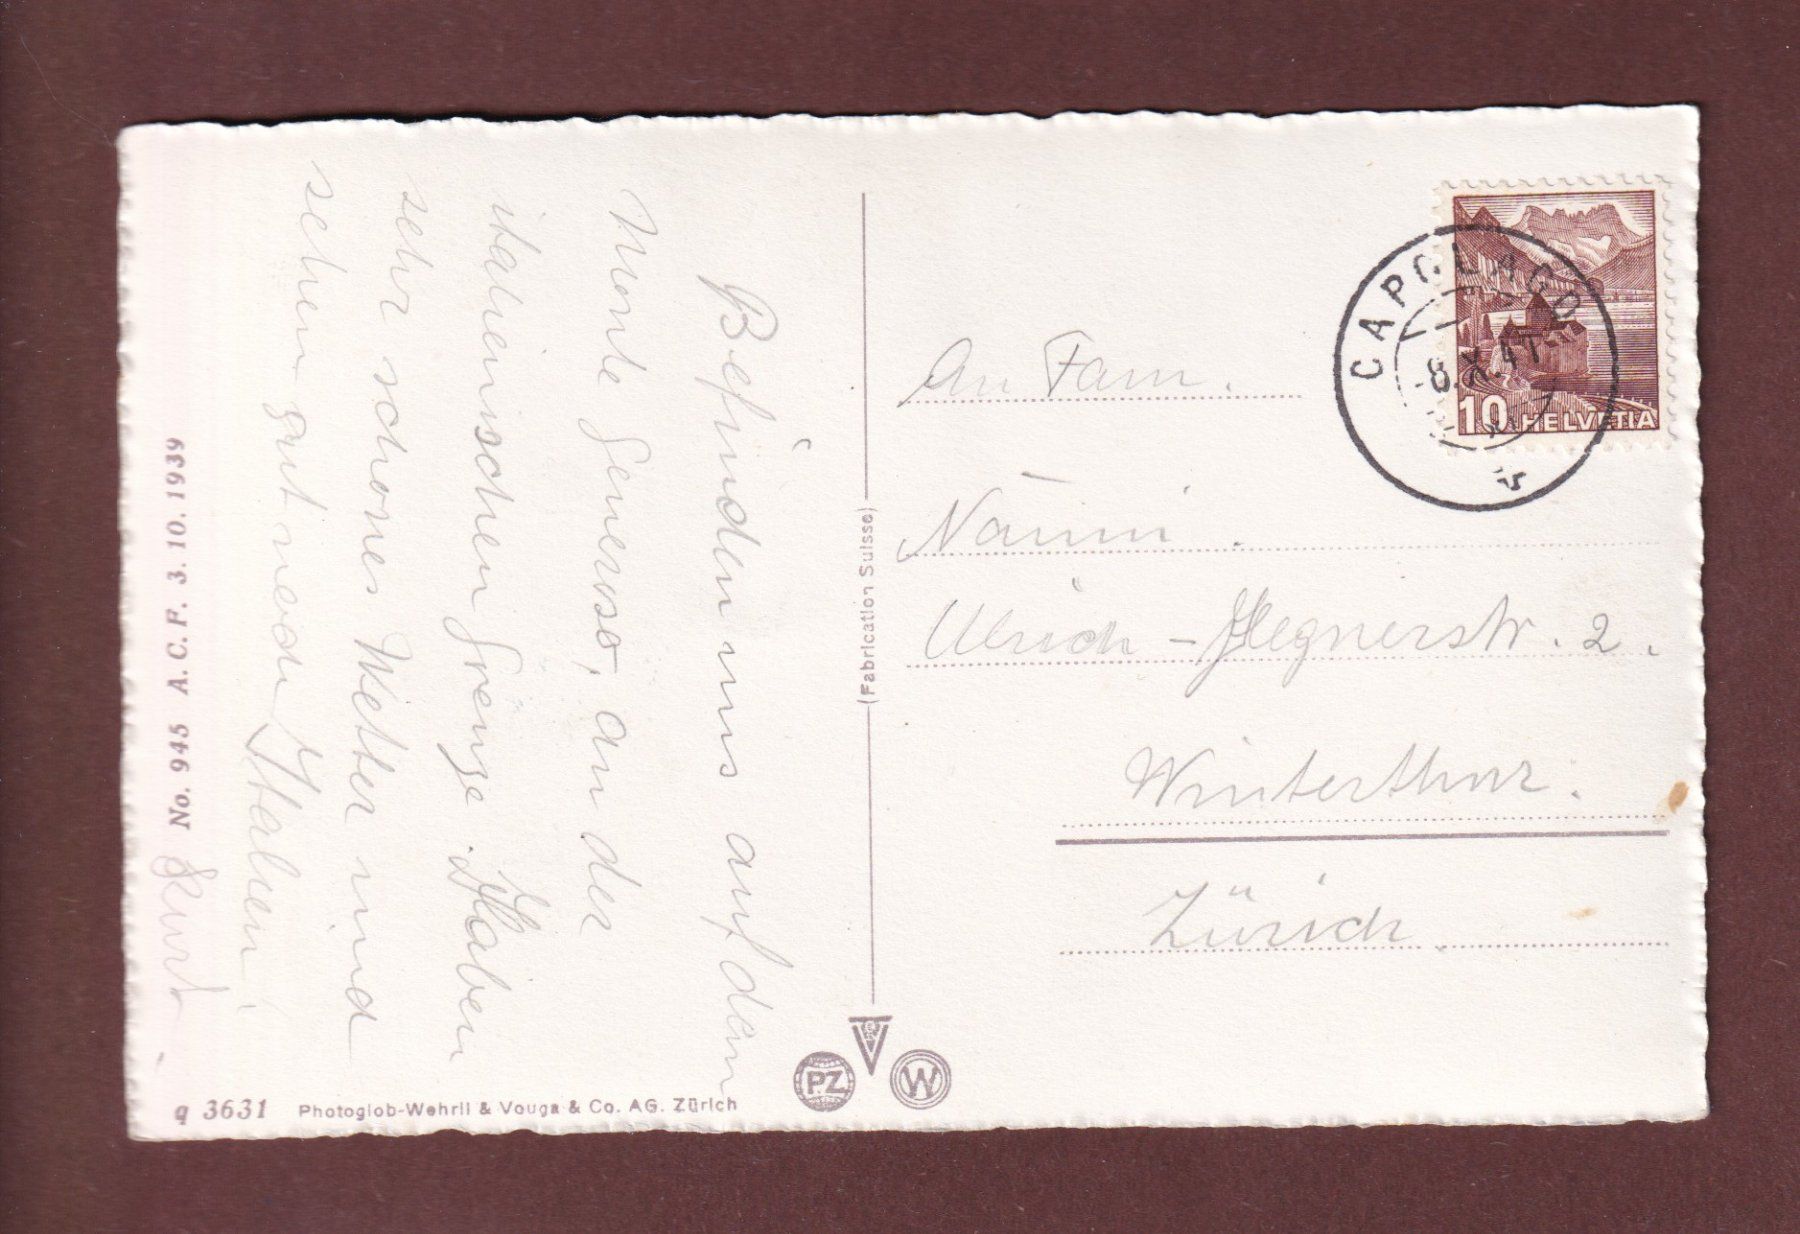 Befinden uns auf dem
Monte Generoso, an der
italienischen Grenze. Haben
sehr schönes Wetter und
sehen gut nach Italien.
Kurt
No. 945 A. C. F. 3. 10. 1939
q 3631 Photoglob-Wehrli & Vouga & Co. AG. Zürich
(Fabrication Suisse)
PZ
W
CAPOLAGO
-8.X.41
10 HELVETIA
An Fam.
Ulrich-Hegnerstr. 2.
Winterthur.
Zürich